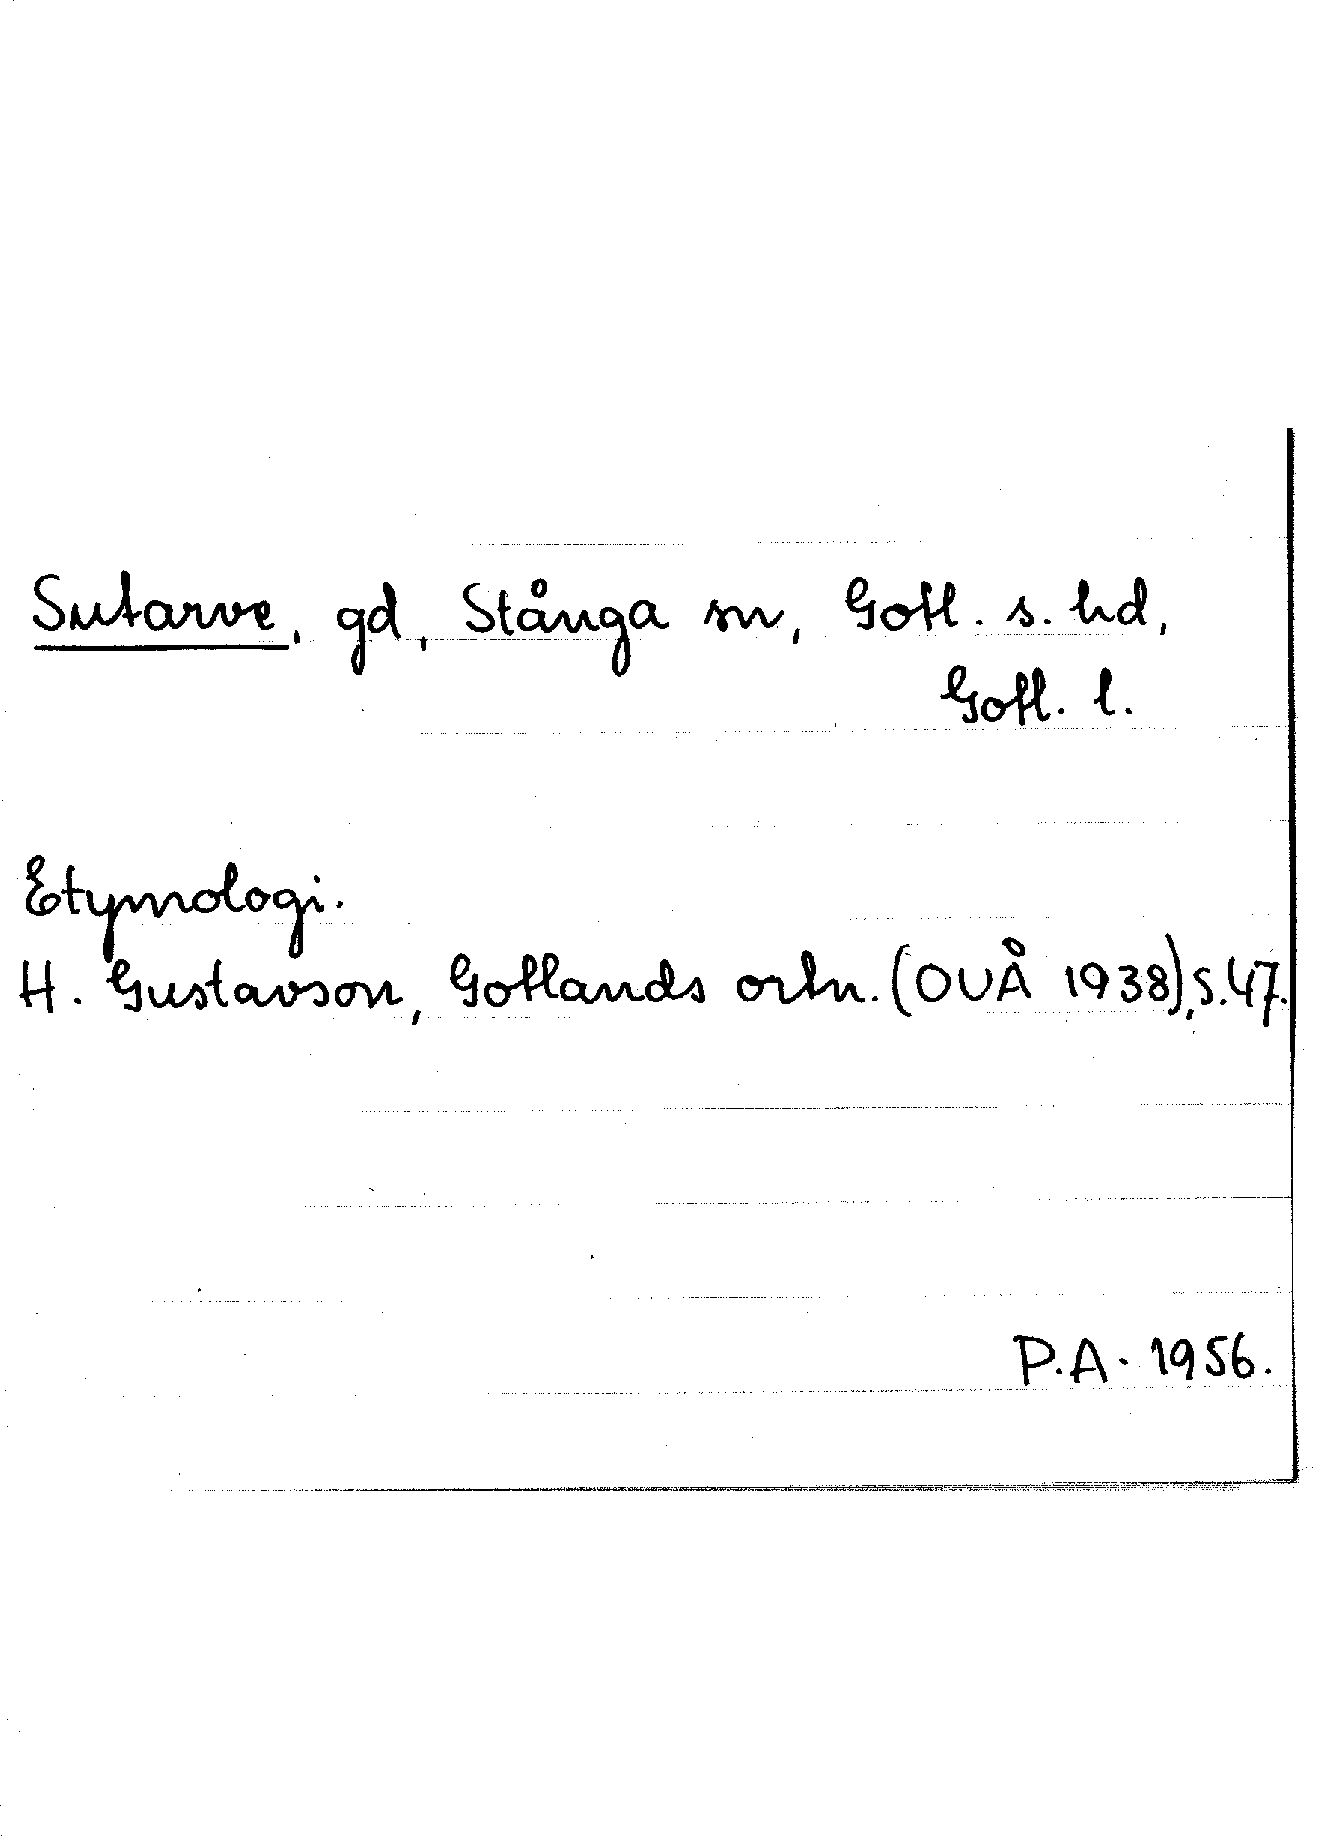 Sutarve, gd, Stånga sn, Gotl. s. hd,
Gotl. l.
Etymologi.
H. Gustavson, Gotlands ortn. (OUÅ 1938), s. 47.
P.A. 1956.